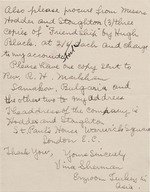 Also please procure from Messrs
Hodder and Stoughton (3) three
copies of "Friendship" by Hugh
Black, at 2/6 each and charge
to my account.
Please have one copy sent to
Rev. A. H.
Samokov, Bulgaria and
the other two to my address
The address of the Company is
Hodder and Stoughton
St. Pauls House Warwick Square
London E.C.
Thank You,
Yours Sincerely
Vina Sherman
Erzroom Turkey in
Asia.